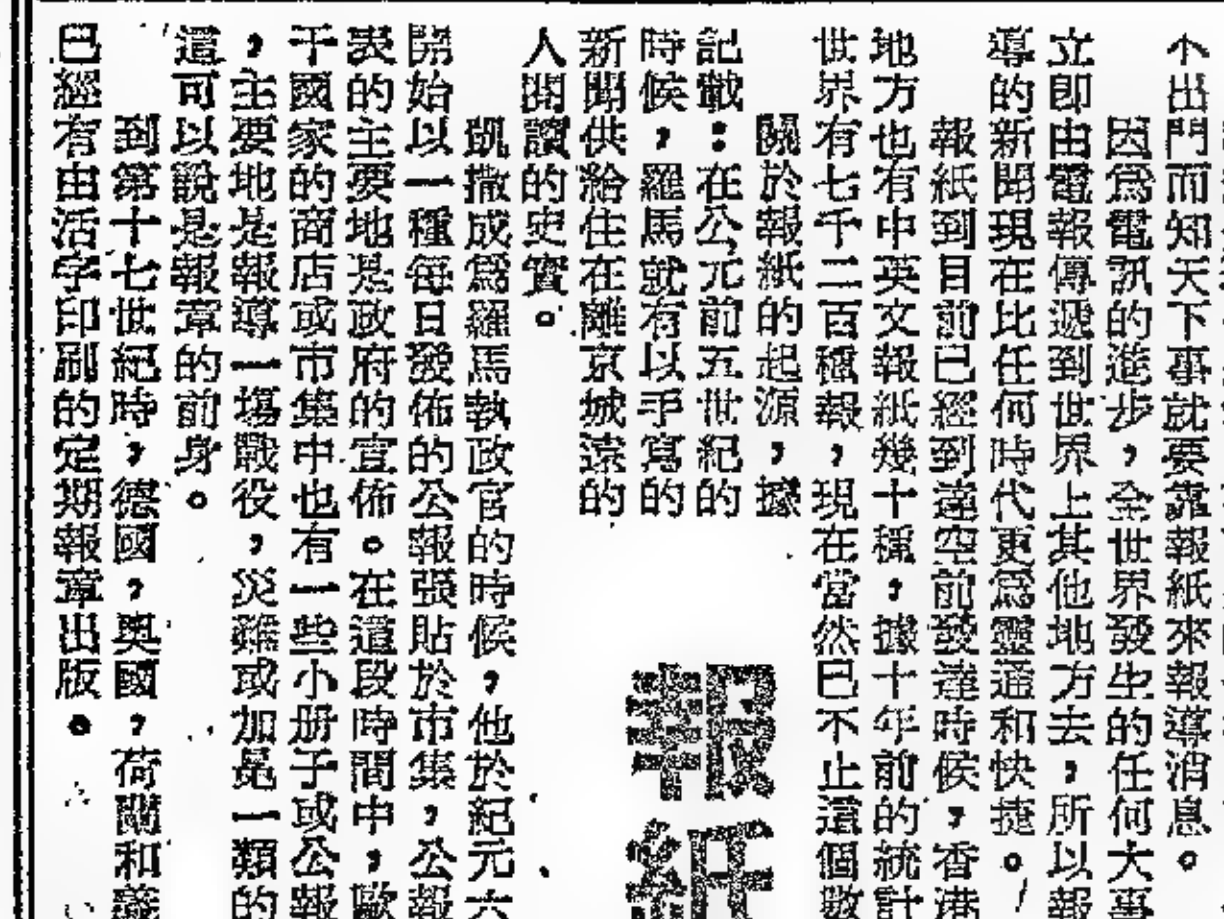 不出門而知天下事就要靠報紙來報導消息。
因爲電訊的進步，全世界發生的任何大事
立即由電報傳遞到世界上其他地方去，所以報
導的新聞現在比任何時代更爲靈通和快捷。
報紙到目前已經到達空前發達時候，香港
地方也有中英文報紙幾十種，據十年前的統計
世界有七千二百種報，現在當然已不止這個數
關於報紙的起源，據
記載：在公元前五世紀的
時候，羅馬就有以手寫的
新聞供給住在離京城遠的
人閱讀的史實。
報紙
凱撒成爲羅馬執政官的時候，他於紀元六
開始以一種每日發佈的公報張貼於市集，公報
表的主要地是政府的宣佈。在這段時間中，歐
于國家的商店或市集中也有一些小册子或公報
，主要地是報導一場戰役，災難或加冕一類的
這可以說是報章的前身。
到第十七世紀時，德國，奧國，荷蘭和義
已經有由活字印刷的定期報章出版。